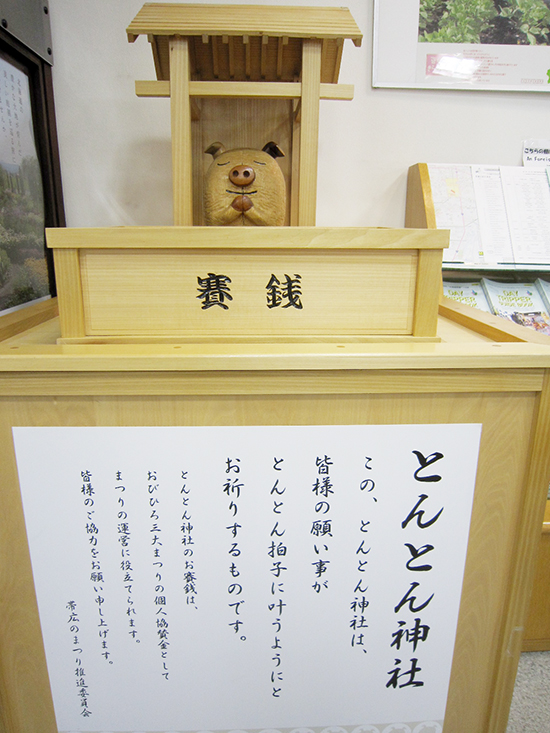 賽銭
とんとん神社
この、とんとん神社は、
皆様の願い事が
とんとん拍子に叶うようにと
お祈りするものです。
とんとん神社のお賽銭は、
おびひろ三大まつりの個人協賛金として
まつりの運営に役立てられます。
皆様のご協力をお願い申し上げます。
帯広のまつり推進委員会